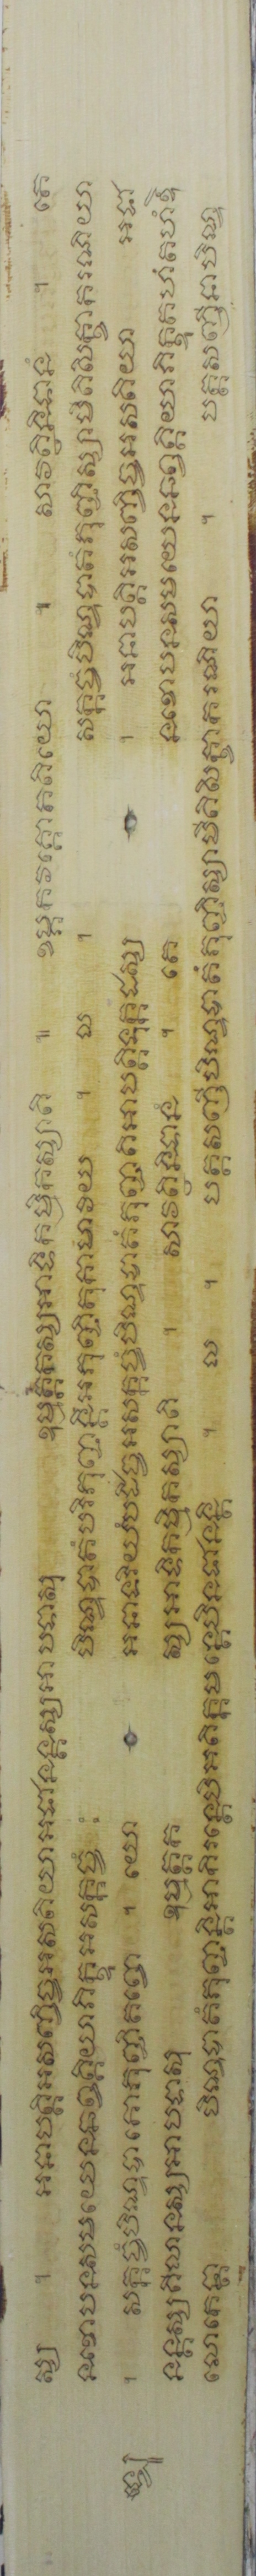 ស្ស ។ អនាបត្តិអសញ្ចិច្ចអសតិយាអជានន្តស្សអាបទាសុ ឧម្មត្តកស្សអាទិកម្មិកស្សាតិ ៕ ឧម្ភកវគ្គោតតិយោ ។ សាវត្ថិនិទានំ ។ តេ
នខោបនសមយេនឆព្វគ្គិយាភិក្ខូអសក្កច្ចំ បិណ្ឌបាតំបរិភុញ្ជន្តិអភុញ្ជិតុកាមាវិយ ។ ល ។ សក្កច្ចំបិណ្ឌបាតំភុញ្ជិស្សាមីតិសិក្ខាករណីយា
។ សក្កច្ចំបិណ្ឌបាតោភុញ្ជិតព្វោ ។ យោ អនាទរិយំបដិច្ចអសក្កច្ចំបិណ្ឌបាតំភុញ្ជតិអាបត្តិទុក្កដស្ស ។ អនាបត្តិអសញ្ចិច្ចអសតិយា អជា
នន្តស្សគិលានស្សអាបទាសុ ឧម្មត្តក ស្សអាទិកម្មិកស្សាតិ ។ សាវត្ថិនិទានំ ។ តេ នខោបនសមយេនឆព្វគ្គិយាភិក្ខូតហំតហំឱ
លោកេន្តា បិណ្ឌបាតំភុញ្ជន្តិអាកិរន្តេបិអតិក្កមន្តេបិនជានន្តិ ។ ល ។ បត្តសញ្ញីបិណ្ឌបាតំភុញ្ជិស្សាមីតិសិក្ខាករណីយា ។ បត្តសញ្ញីនាបិណ្ឌ